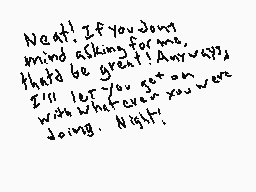 Neat! If you dont
mind asking for me,
thatd be great! Anyways,
I'll let you get on
with whatever you were
doing. Night!